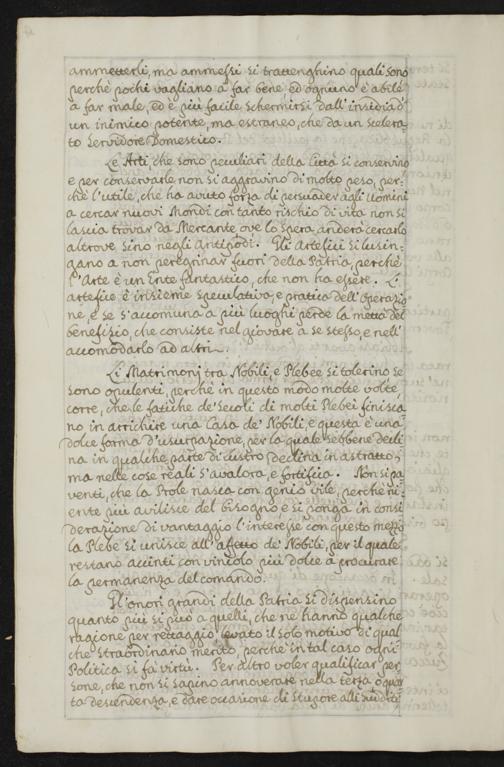 ammetterli, ma ammessi si trattenghino quali sono
perche pochi vagliano a far bene, ed ogniuno è abile
a far male, ed è più facile schermirsi dall'insidia d'
un inimico potente, ma estraneo, che da un scelera-
to servidore Domestico.
Le Arti, che sono peculiari della Città si conservino
e per conservarle non si aggravino di molto peso, per-
che l'utile, che ha avuto forza di persuader agli Uomini
a cercar nuovi Mondi con tanto rischio di vita non si
lascia trovar da Mercante, ove lo spera, anderà cercarlo
altrove sino negli Antipodi. Gli Artefici si lusin-
gano a non peregrinar fuori della Patria, perche
l'Arte è un Ente fantastico, che non ha essere. L'
artefice è insieme speculativo, e pratico dell'operazio
ne, e se s'accomuna a più luoghi perde la metta del
benefizio, che consiste nel giovare a se stesso, e nell'
accomodarlo ad altri.
Li Matrimonj tra Nobili, e Plebee si tolerino se
sono opulenti, perche in questo modo molte volte
corre, che le fatiche de' secoli di molti Plebei finisca-
no in arrichire una Casa de' Nobili, e questa è una
dolce forma d'usurpazione, per la quale sebbene decli
na in qualche parte di lustro declina in astratto,
ma nelle cose reali s'avalora, e fortifica. Non si pa
venti, che la Prole nasca con genio vile, perche ni-
ente più avilisce del bisogno e si ponga in consi
derazione di vantaggio l'interesse con questo mezzo
la Plebe si unisce all'affetto de' Nobili, per il quale
restano accinti con vincolo più dolce a procurare
la permanenza del comando.
Gl'onori grandi della Patria si dispensino
quanto più si può a quelli, che ne hanno qualche
ragione per retaggio levato il solo motivo di qual
che straordinario merito, perche in tal caso ogni
Politica si fà virtù. Per altro voler qualificar per
sone, che non si sapino annoverare nella terza o quar
ta descendenza, è dare occasione di stupore alli sudditi